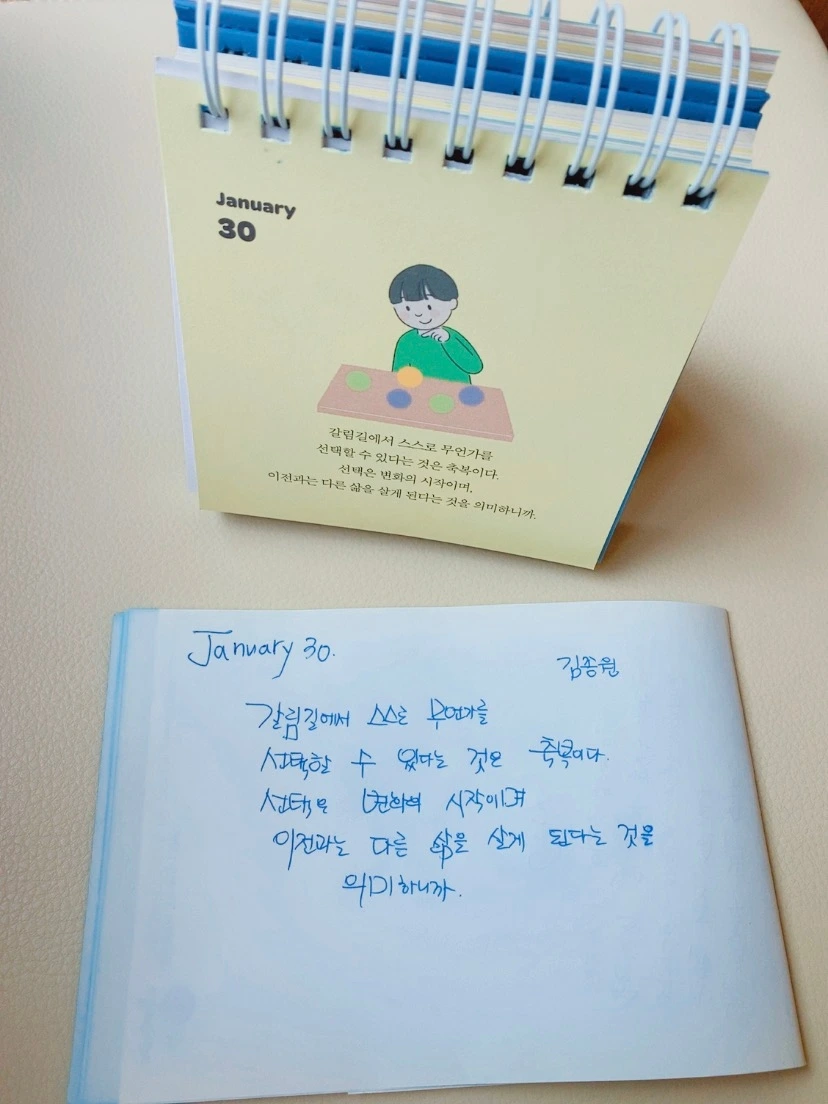 January
30
갈림길에서 스스로 무언가를
선택할 수 있다는 것은 축복이다.
선택은 변화의 시작이며,
이전과는 다른 삶을 살게 된다는 것을 의미하니까.
January 30.
김종원
갈림길에서 스스로 무언가를
선택할 수 있다는 것은 축복이다.
선택은 변화의 시작이며
이전과는 다른 삶을 살게 된다는 것을
의미하니까.